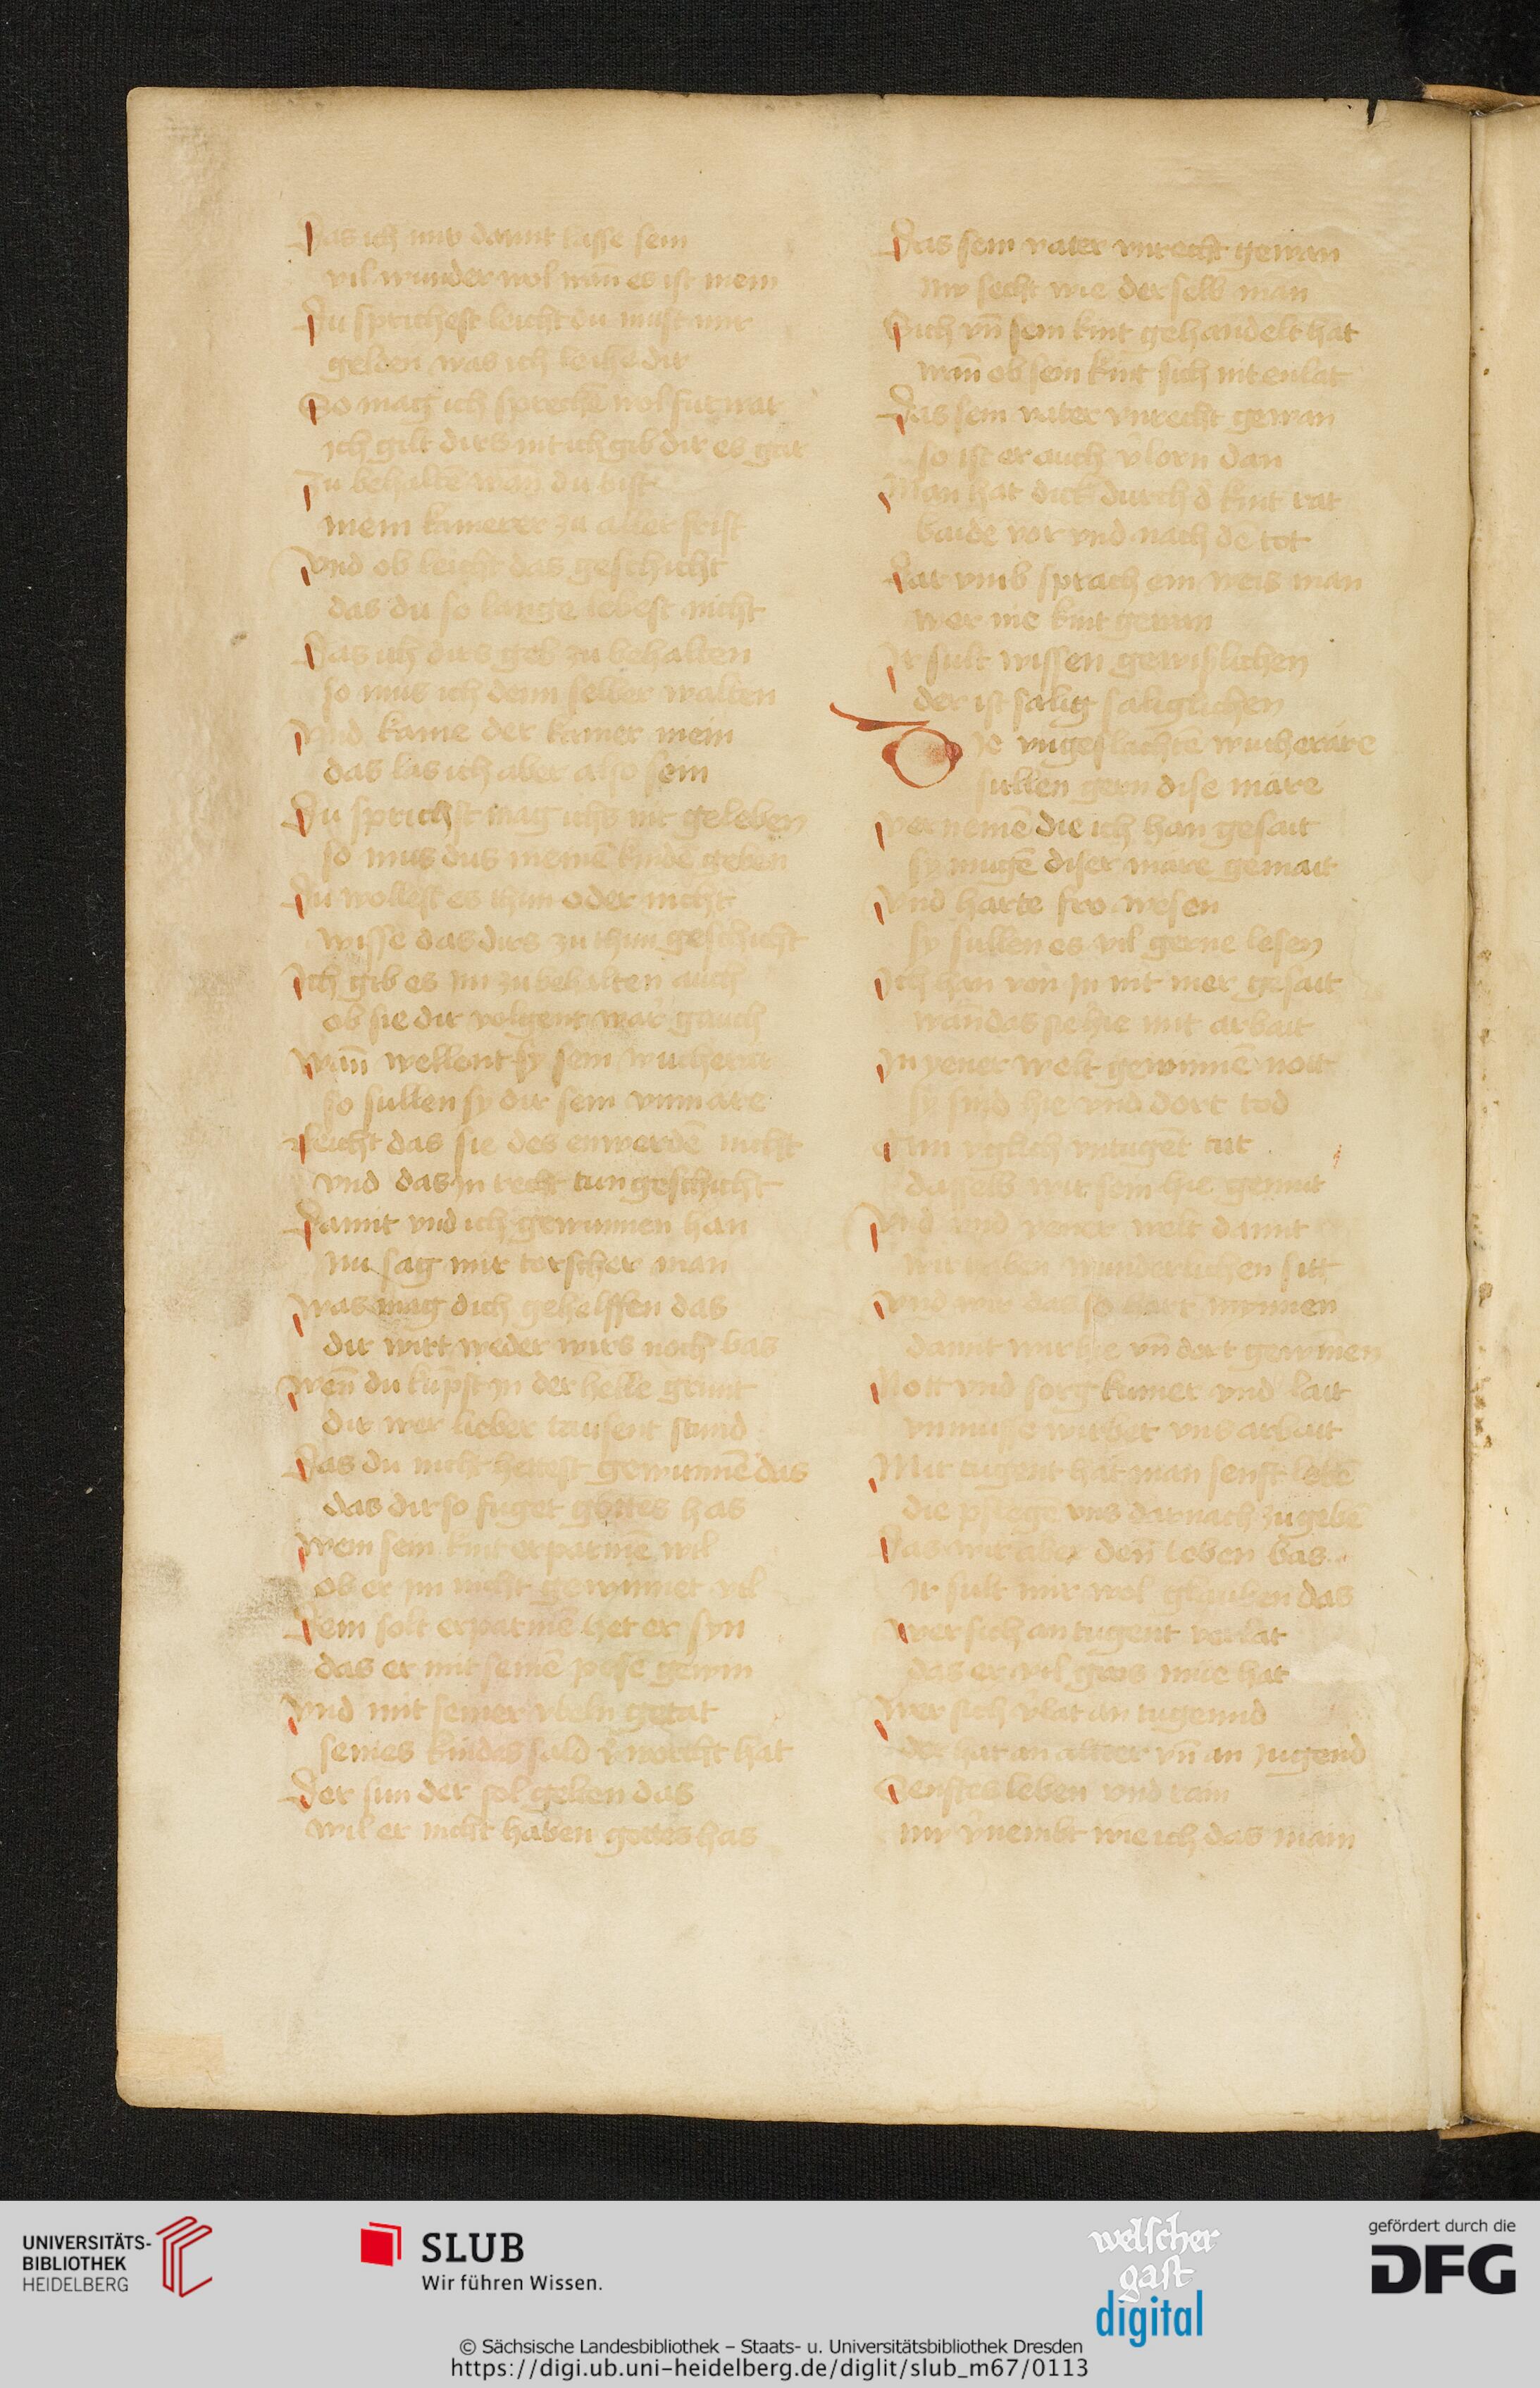 Das ich mir damit lasse sein
vil wunder wol wañ es ist mein
Du sprichest leicht du must mir
gelden was ich leihe dir
So mag ich sprechē wol furwar
ich gilt dirs nit ich gib dir es gar
Zu behaltē wañ du bist
mein kamerer zu aller frist
Vnd ob leicht das geschicht
das du so lange lebest nicht
Das ich dirs geb zu behalten
so mus ich denn selber walten
Vnd kame der kamer mein
das las ich aber also sein
Du sprichst mag ichs nit geleben
so mus dus meinē kindē geben
Du wollest es thun oder nicht
wisse das dirs zu thun geschicht
Ich gib es im zu behalten auch
ob sie dir volgent gauch
Wañ wellent sy sein wucherar
so sullen sy dir sein vnmare
leicht das sie des enwerdē nicht
vnd das in recht tun geschicht
Damit vnd ich gewunnen han
Nu sag mir torscher man
Was mag dich gehelffen das
dir wirt weder wirs noch bas
Wen̄ du kupst in der helle grunt
dir wer lieber tausent stund
Das du nicht hettest gewunnē das
das dir so fuget gotes has
Wem sein kint erparmē wil
ob er im nicht gewinnet vil
Dem solt erparmē het er syn
das er mit seinē pose gewin
Vnd mit seiner vbeln getat
seines kindes sald v̄worcht hat
Der sun der sol gelten das
wil er nicht haben gottes has
Das sein vater vnrecht gewan
Nw secht wie der selb man
Sich vn̄ sein kint gehandelt hat
wañ ob sein kint sich nit enlat
Das sein vater vnrecht gewan
so ist er auch v̄lorn dan
Man hat dick durch d kint rat
baide vor vnd nach dē tot
Dar vmb sprach ein weis man
wer nie kint gewan
Ir sult wissen gewislichen
der ist salig saliglichen
Die vngeslachtē wucherare
sullen gern dise mare
Vernemē die ich han gesait
sy mugē diser mare gemait
Vnd harte fro wesen
sy sullen es vil gerne lesen
Ich han von in nit mer gesait
wan das sie hie mit arbait
In yener welt gewinnē nott
sy sind hie vnd dort tod
Ein yglich vntugēt tut
dasselb wir sein hie gemut
Vnd vnd yener welt damit
wir haben wunderlichen sitt
Vnd wir das so hart mynnen
damit wir hie vn̄ dort gewinnen
Nott vnd sorg kumer vnd lait
vnmusse wirbet vns arbait
Mit tugent hat man senft lebē
die pflege vns darnach zu gebē
Das wir aber den̄ leben bas
Ir sult mir wol glauben das
Wer sich an tugent verlat
das er vil gros mue hat
Wer sich v̄lat an tugennd
der hat an altter vn̄ an Jugend
Senftes leben vnd rain
nw v̄nembt wie ich das main
UNIVERSITÄTS-
BIBLIOTHEK
HEIDELBERG
SLUB
Wir führen Wissen.
welscher
gast
digital
gefördert durch die
DFG
© Sächsische Landesbibliothek – Staats- u. Universitätsbibliothek Dresden
https://digi.ub.uni-heidelberg.de/diglit/slub_m67/0113